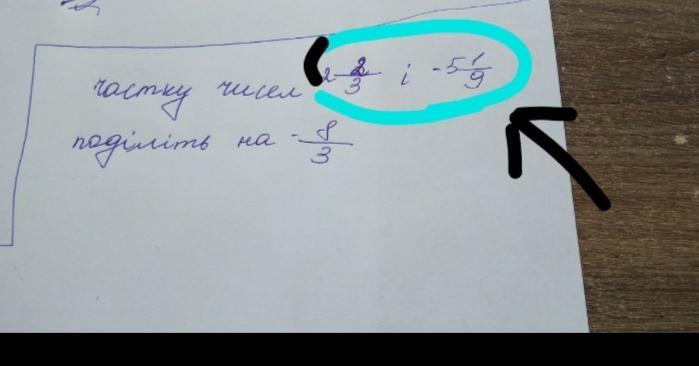 частку чисел 2 2/3 і -5 1/9
поділіть на - 8/3